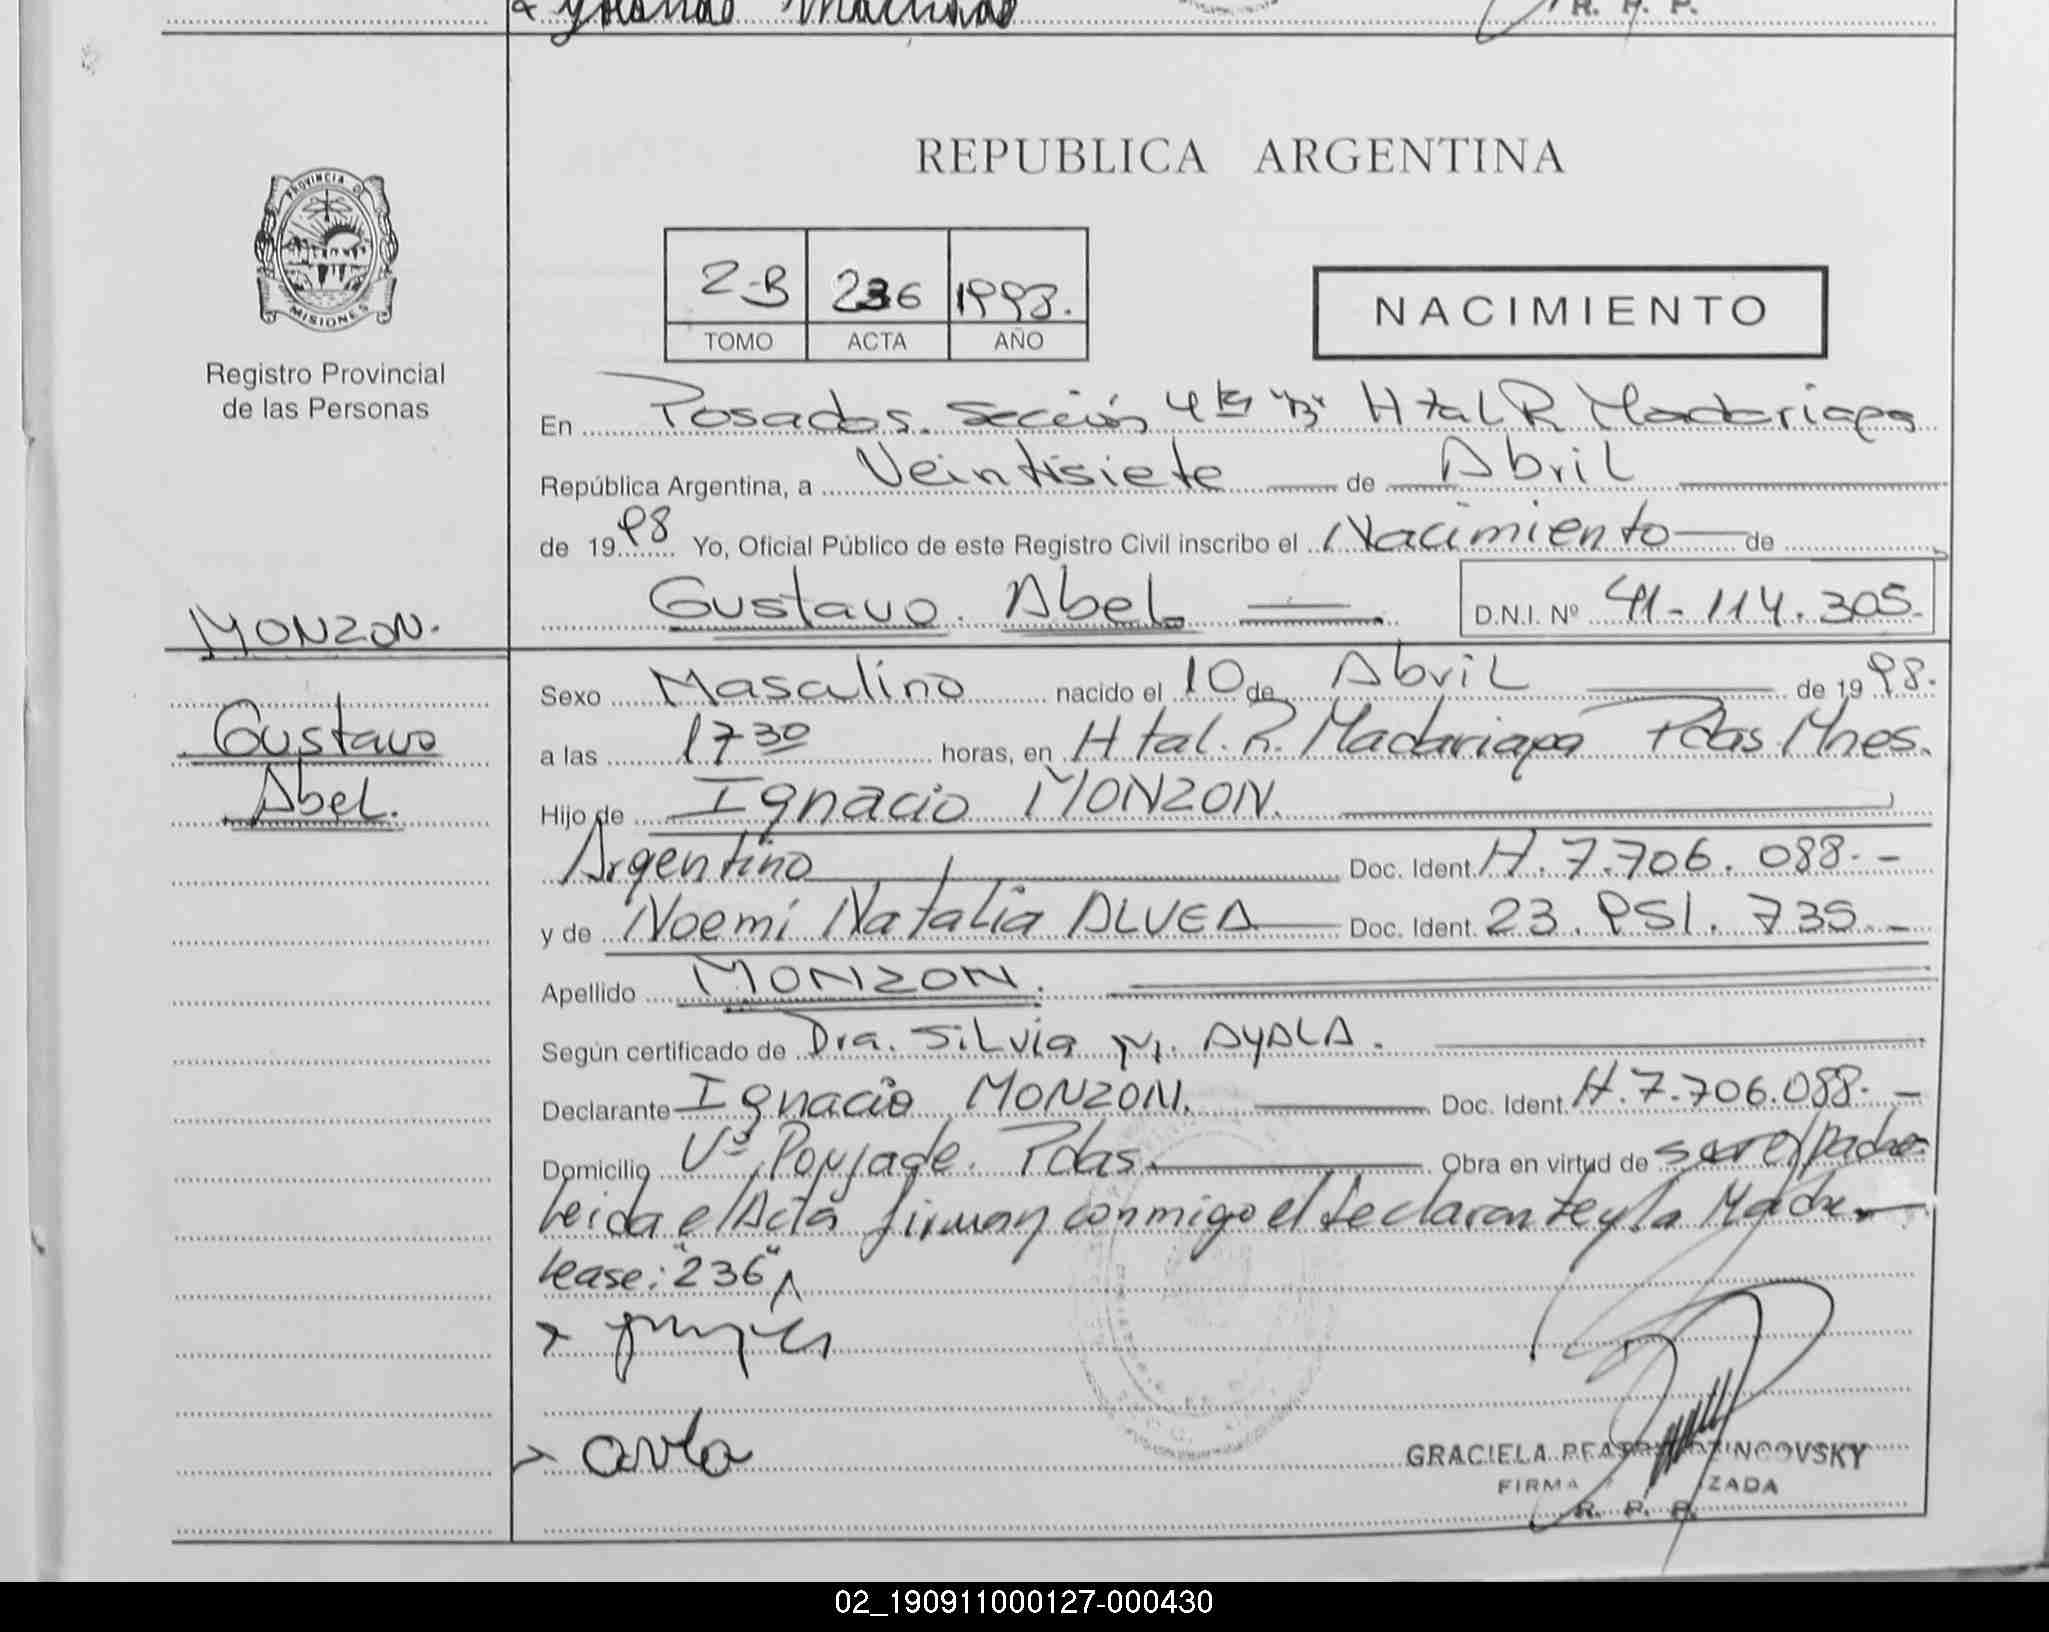 Yolanda Machado
R. P. P.
REPUBLICA ARGENTINA
PROVINCIA D
MISIONES
Registro Provincial
de las Personas
2-B 236 1998.
TOMO ACTA AÑO
NACIMIENTO
En Posadas. Sección 4ta "B" Htal R Madariaga
República Argentina, a Veintisiete de Abril
de 1998 Yo, Oficial Público de este Registro Civil inscribo el Nacimiento de
Gustavo Abel D.N.I. Nº 41-114.305.
MONZON.
Gustavo
Abel.
Sexo Masculino nacido el 10 de Abril de 1998.
a las 1730 horas, en Htal. R. Madariaga Pdas. Mnes.
Hijo de Ignacio MONZON.
Argentino Doc. Ident. H. 7.706.088.-
y de Noemi Natalia ALVEA Doc. Ident. 23.951.735.-
Apellido MONZON.
Según certificado de Dra. Silvia M. AYALA.
Declarante Ignacio MONZON. Doc. Ident. H.7.706.088.-
Domicilio Vº Poujade. Pdas. Obra en virtud de ser el padre
Leida el Acta firman conmigo el declarante y la Madre
Lease: "236"
GRACIELA NCOVSKY
FIRMA ZADA
R. P. P.
02_190911000127-000430